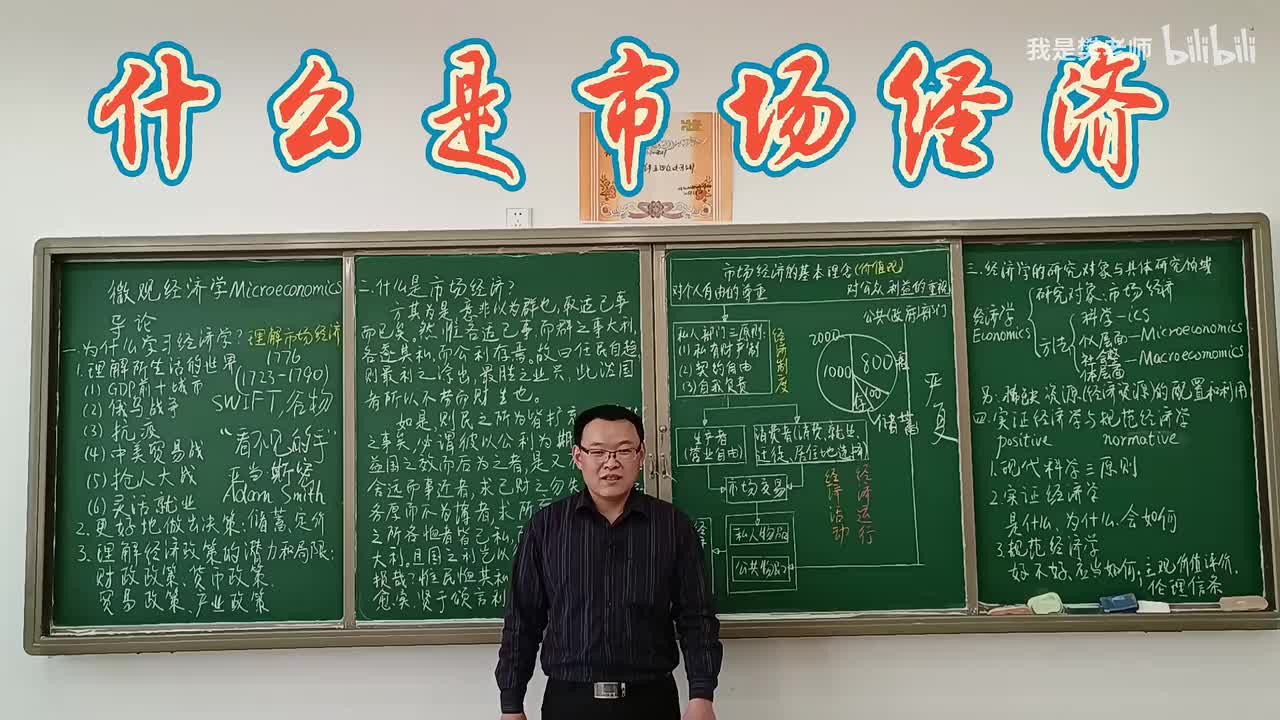 我是樊老师 bilibili
什么是市场经济
微观经济学Microeconomics
导论
一.为什么学习经济学?理解市场经济
1.理解所生活的世界
1776
(1723-1790)
(1) GDP前十城市
(2) 俄乌战争
SWIFT,谷物
(3) 抗疫
(4) 中美贸易战
“看不见的手”
(5) 抢人大战
亚当斯密
(6) 灵活就业
Adam Smith
2.更好地做出决策:储蓄、定价
3.理解经济政策的潜力和局限:
财政政策、货币政策、
贸易政策、产业政策
二.什么是市场经济?
方其为是,意非以为群也,取适己事
而已矣。然惟各适己事,而群之事大利,
各遂其私,而公利存焉。故曰任民自趋,
则最利之涂出,最胜之业兴,此法国
者所以不劳而财生也。
如是则民之所为皆
之事矣,必谓彼以公利为期
益国之效而后为之者,是又
舍远而事近者,求己财之勿失
务厚而不为薄者,求所
之所各恤者皆己私,
大利,且国之利
损哉?惟民恤其私
市场经济的基本理念(价值观)
对个人自由的尊重
对公众利益的重视
公共(政府)部门
私人部门三原则:
(1)私有财产制
(2)契约自由
(3)自我负责
经济制度
2000
800
1000
100
储蓄
严复
生产者
(营业自由)
消费者(消费、就业、
迁徙、居住地选择)
市场交易
经济活动
经济运行
私人物品
公共物品
三.经济学的研究对象与具体研究领域
经济学
Economics
研究对象:市场经济
方法
科学-ics
个人层面-Microeconomics
社会整体层面-Macroeconomics
另:稀缺资源(经济资源的配置和利用)
四.实证经济学与规范经济学
positive normative
1.现代科学三原则
2.实证经济学
是什么、为什么、会如何
3.规范经济学
好不好、应当如何,主观价值评价,
伦理信条